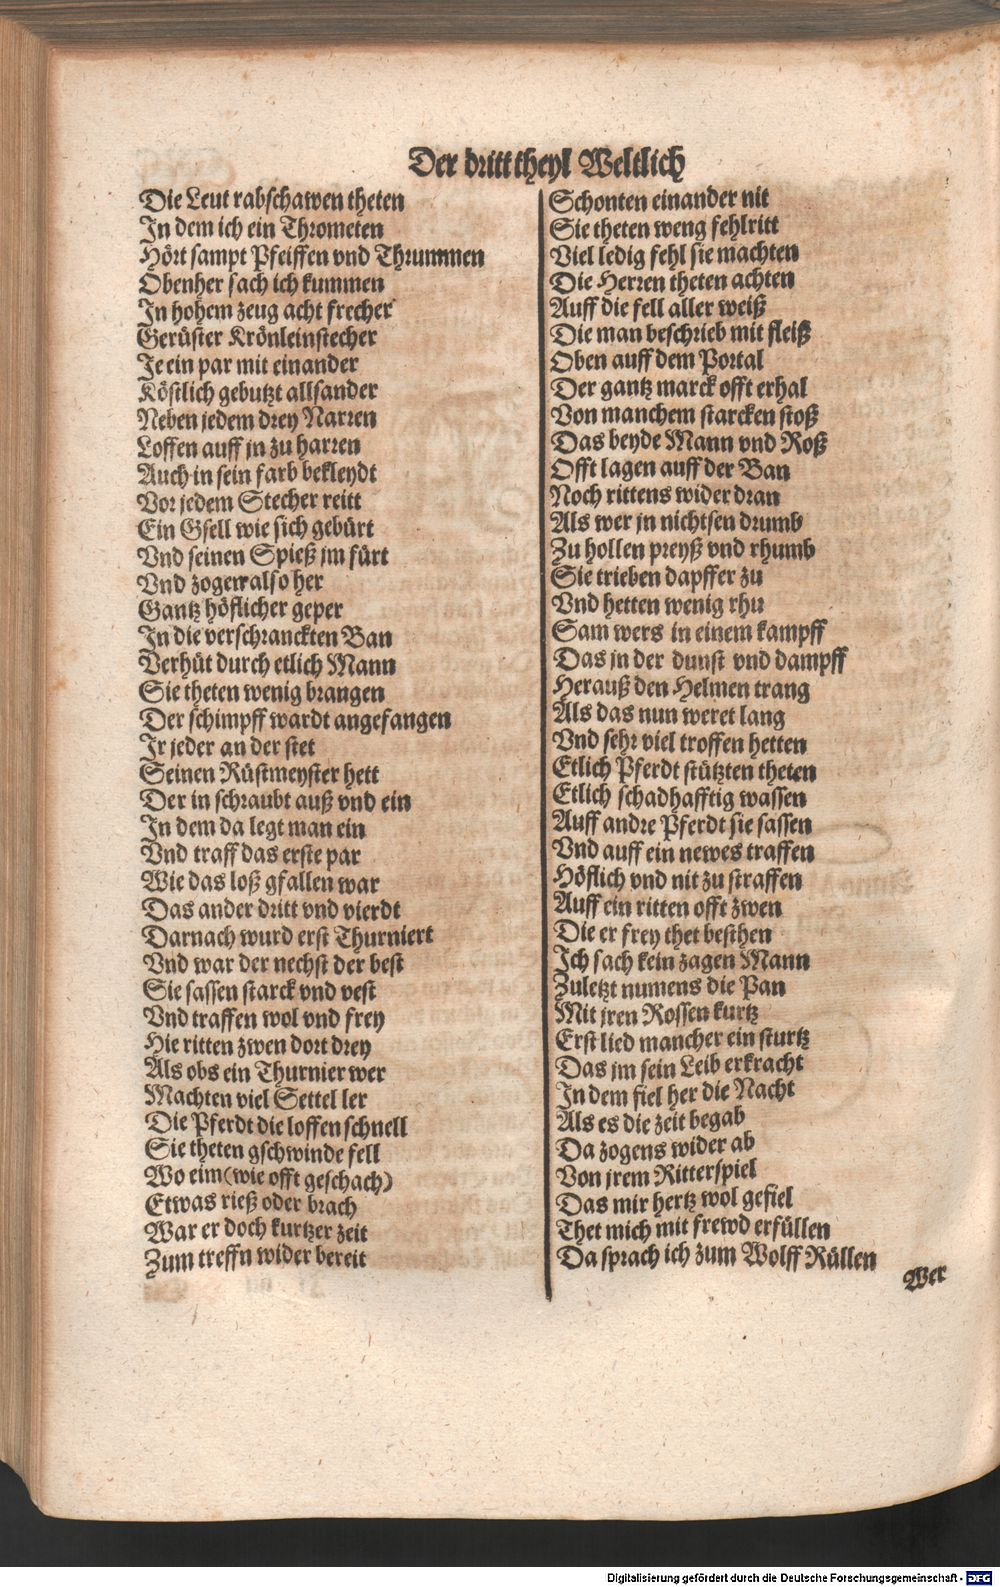 Der dritt theyl Weltlich
Die Leut rabschawen theten
In dem ich ein Thrometen
Hört sampt Pfeiffen vnd Thrummen
Obenher sach ich kummen
In hohem zeug acht frecher
Gerüster Krönleinstecher
Je ein par mit einander
Köstlich gebutzt allsander
Neben jedem drey Narren
Loffen auff jn zu harren
Auch in sein farb bekleydt
Vor jedem Stecher reitt
Ein Gsell wie sich gebürt
Vnd seinen Spieß jm fürt
Vnd zogen also her
Gantz höflicher geper
In die verschranckten Ban
Verhüt durch etlich Mann
Sie theten wenig brangen
Der schimpff wardt angefangen
Ir jeder an der stet
Seinen Rüstmeyster hett
Der in schraubt auß vnd ein
In dem da legt man ein
Vnd traff das erste par
Wie das loß gfallen war
Das ander dritt vnd vierdt
Darnach wurd erst Thurniert
Vnd war der nechst der best
Sie sassen starck vnd vest
Vnd traffen wol vnd frey
Hie ritten zwen dort drey
Als obs ein Thurnier wer
Machten viel Settel ler
Die Pferdt die loffen schnell
Sie theten gschwinde fell
Wo eim (wie offt geschach)
Etwas rieß oder brach
War er doch kurtzer zeit
Zum treffn wider bereit
Schonten einander nit
Sie theten weng fehlritt
Viel ledig fehl sie machten
Die Herren theten achten
Auff die fell aller weiß
Die man beschrieb mit fleiß
Oben auff dem Portal
Der gantz marck offt erhal
Von manchem starcken stoß
Das beyde Mann vnd Roß
Offt lagen auff der Ban
Noch rittens wider dran
Als wer jn nichtsen drumb
Zu hollen preyß vnd rhumb
Sie trieben dapffer zu
Vnd hetten wenig rhu
Sam wers in einem kampff
Das jn der dunst vnd dampff
Herauß den Helmen trang
Als das nun weret lang
Vnd sehr viel troffen hetten
Etlich Pferdt stützten theten
Etlich schadhafftig wassen
Auff andre Pferdt sie sassen
Vnd auff ein newes traffen
Höflich vnd nit zu straffen
Auff ein ritten offt zwen
Die er frey thet besthen
Ich sach kein zagen Mann
Zuletzt numens die Pan
Mit jren Rossen kurtz
Erst lied mancher ein sturtz
Das jm sein Leib erkracht
In dem fiel her die Nacht
Als es die zeit begab
Da zogens wider ab
Von jrem Ritterspiel
Das mir hertz wol gefiel
Thet mich mit frewd erfüllen
Da sprach ich zum Wolff Rüllen
Wer
Digitalisierung gefördert durch die Deutsche Forschungsgemeinschaft - DFG